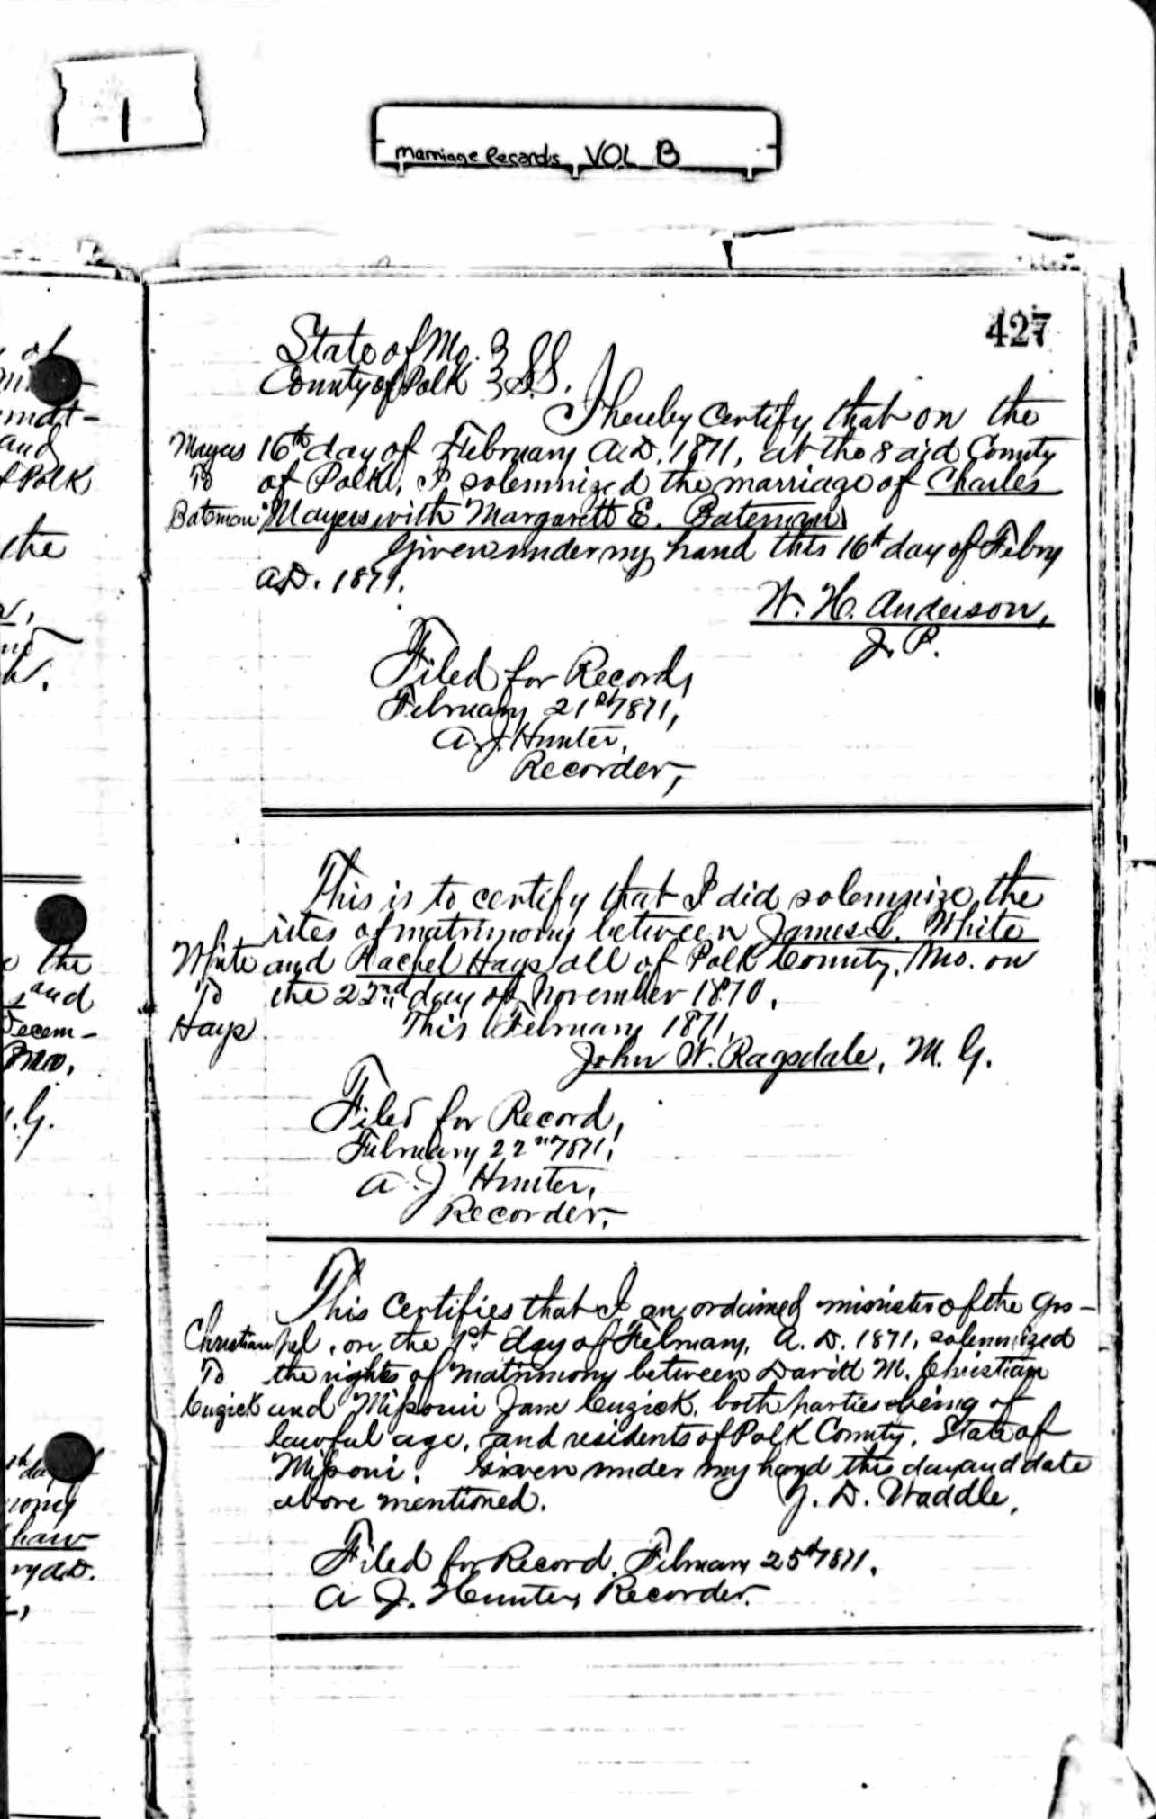 1
Marriage Records VOL B
427
State of Mo. } SS.
County of Polk }
I hereby certify that on the
Mayers 16th day of February A.D. 1871, at the said County
To of Polk, I solemnized the marriage of Charles
Bateman Mayers with Margarett E. Bateman
Given under my hand this 16th day of Febry
A.D. 1871.
W. H. Anderson,
J. P.
Filed for Record,
February 21st 1871,
A. J. Hunter,
Recorder,
This is to certify that I did solemnize the
rites of matrimony between James L. White
White and Rachel Hays all of Polk County, Mo. on
To the 22nd day of November 1870.
Hays This February 1871.
John W. Ragsdale, M. G.
Filed for Record,
February 22nd 1871,
A. J. Hunter,
Recorder.
This Certifies that I an ordained minister of the Gos-
Christian pel, on the 1st day of February, A. D. 1871, solemnized
To the rights of matrimony between David M. Christian
Cuzick and Missouri Jane Cuzick, both parties being of
lawful age, and residents of Polk County, State of
Missouri. Given under my hand this day and date
above mentioned. J. D. Waddle,
Filed for Record, February 25th 1871.
A. J. Hunter, Recorder.
the
and
of Polk
the
the
and
Decem-
Mo.
G.